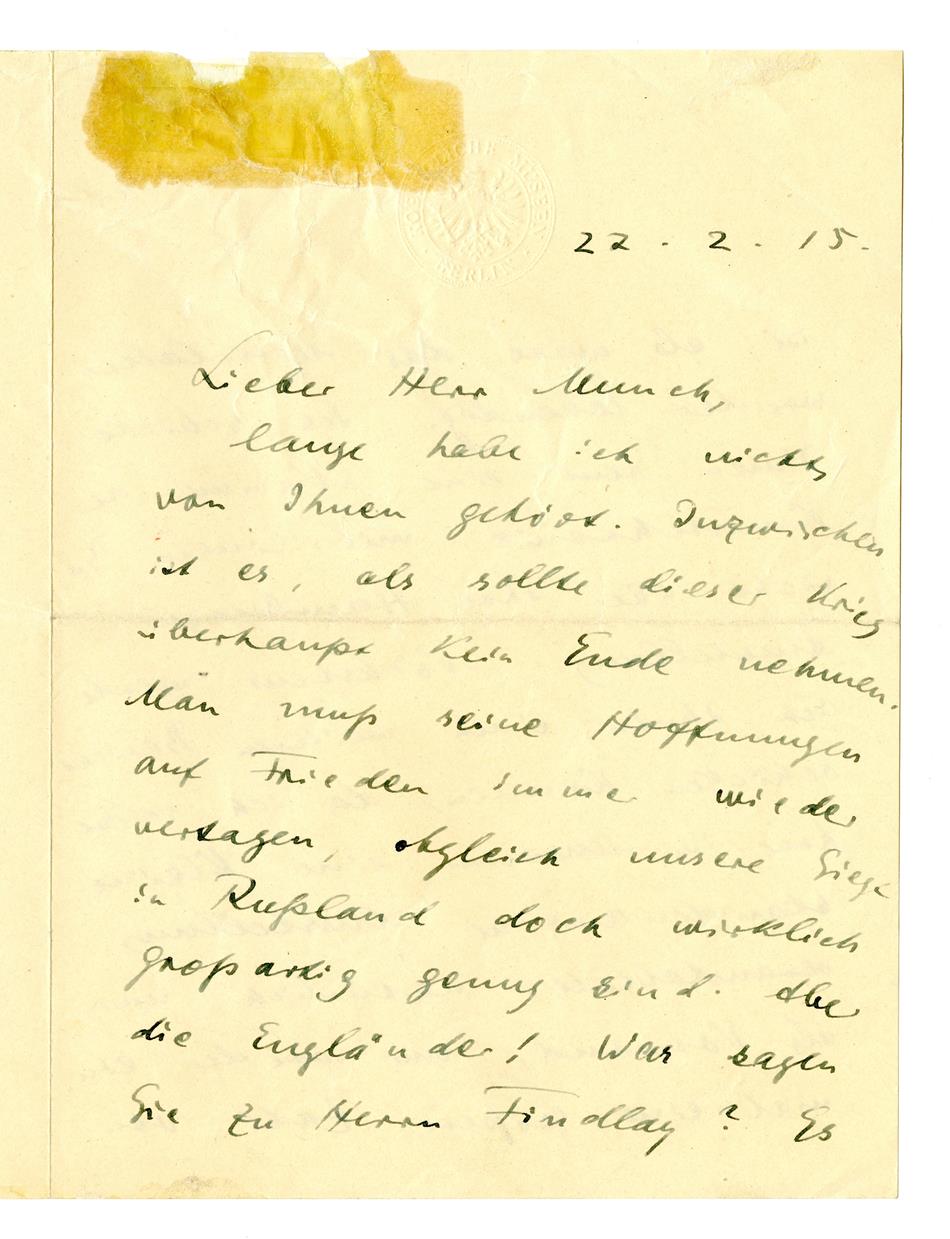 KÖNIGLICHE MUSEEN
BERLIN
22. 2. 15.
Lieber Herr Munch,
lange habe ich nichts
von Ihnen gehört. Inzwischen
ist es, als sollte dieser Krieg
überhaupt kein Ende nehmen.
Man muß seine Hoffnungen
auf Frieden immer wieder
vertagen, obgleich unsere Siege
in Rußland doch wirklich
großartig genug sind. Aber
die Engländer! Was sagen
Sie zu Herrn Findlay? Es